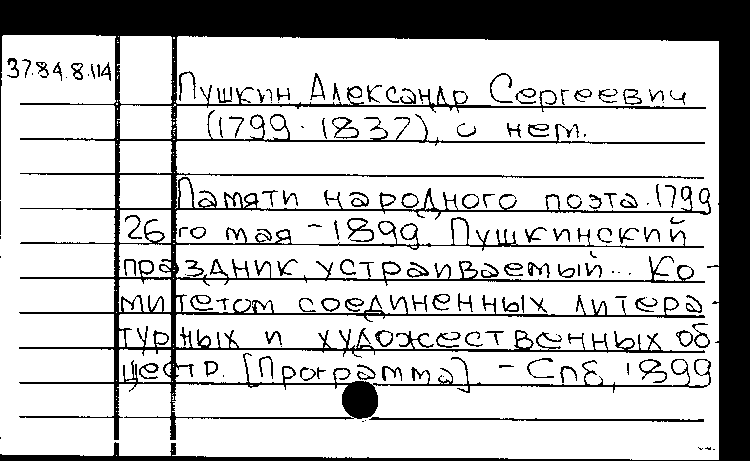 37.84.8.114
Пушкин, Александр Сергеевич
(1799-1837), о нем.
Памяти народного поэта. 1799
26го мая - 1899. Пушкинский
праздник, устраиваемый... Ко-
митетом соединенных литера-
турных и художественных об-
ществ. [Программа]. - Спб, 1899